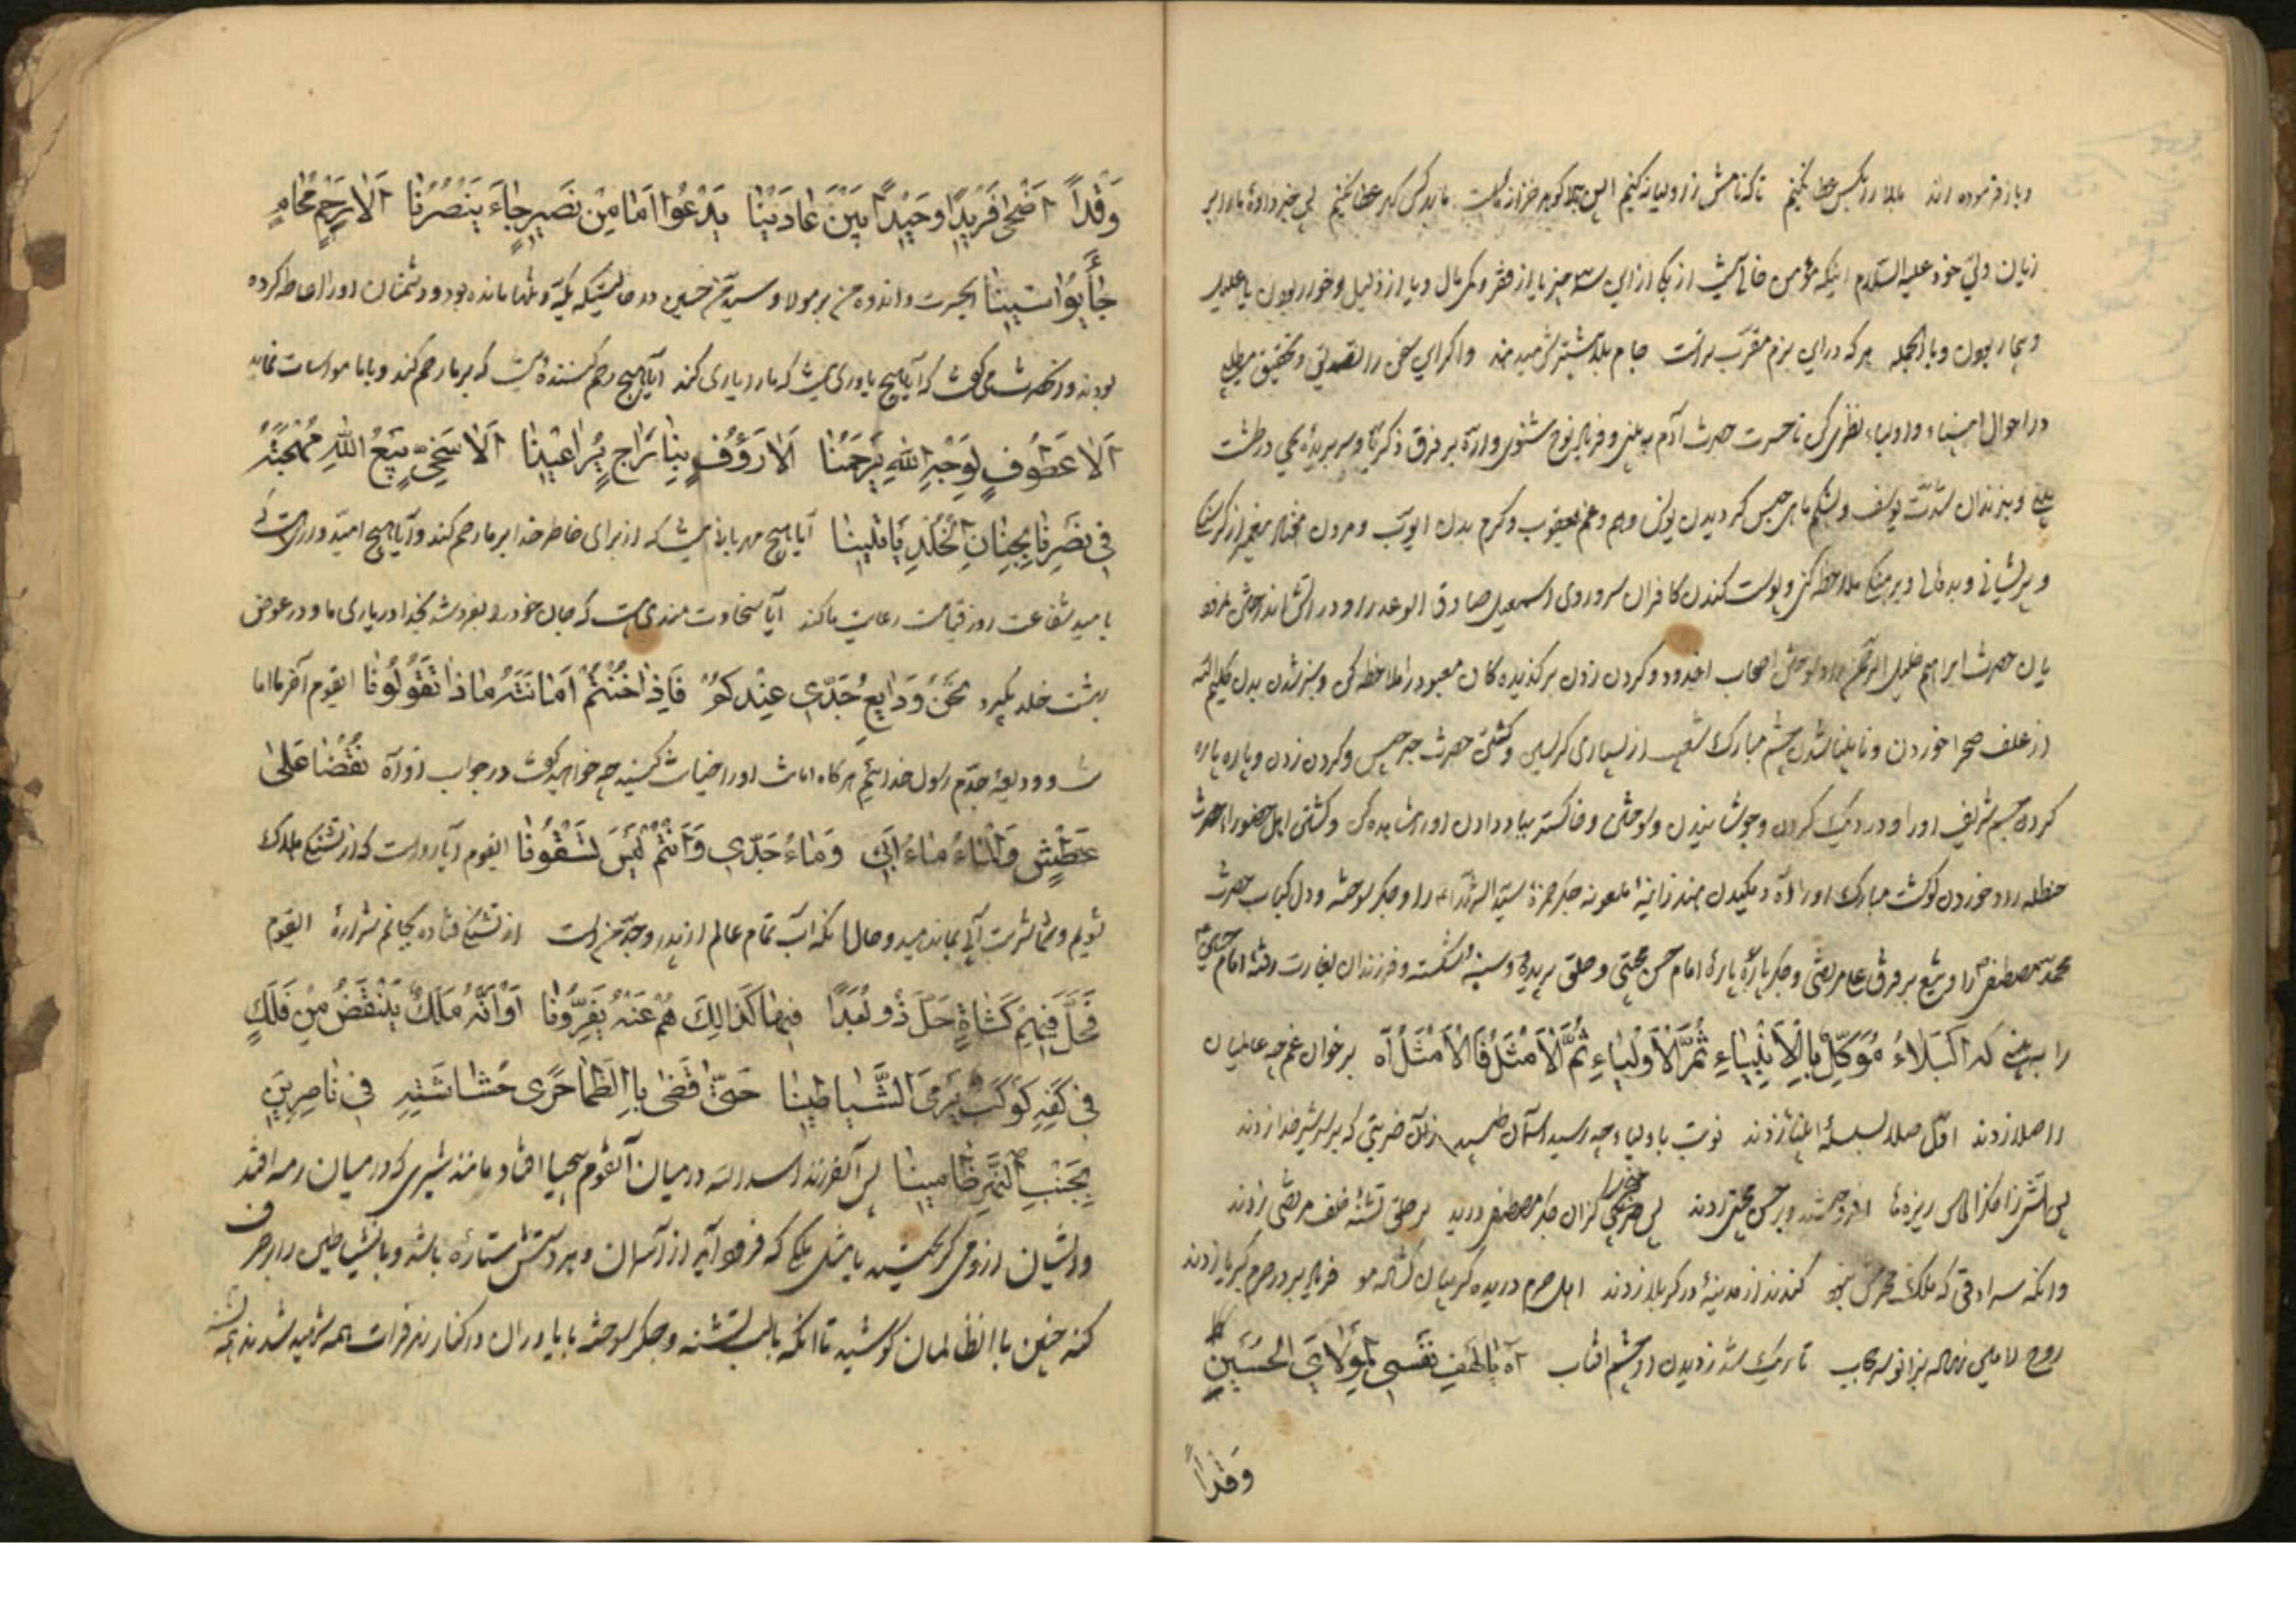 و باز فرموده اند بلا را بکس عطا نکنیم تا که نامش ز اولیا نکنیم این بلا گوهر خزانه ماست ما بهر کس گهر عطا نکنیم
زبان ولی خود علیه السلام اینکه مؤمن خالی نیست از یکی از این سه چیز یا از فقر و کمی مال و یا از ذلیل و خوار بودن یا علیل
و بیمار بودن و بالجمله هر که در این بزم مقرب تر است جام بلا بیشترش میدهند و اگر این سخن را تصدیق و تحقیق
در احوال انبیاء و اولیاء نظر کن تا حسرت حضرت آدم به بینی و فریاد نوح شنوی و اره بر فرق ذکریا و سر بریده یحیی در طشت
و بزندان شدن یوسف و بشکم ماهی حبس گردیدن یونس و هم و غم یعقوب و کرم بدن ایوب و مردن
و پریشانی و بدحالی و برهنگی ملاحظه کن و پوست کندن کافران سر و روی اسمعیل صادق الوعد را و در آتش انداختن
یان حضرت ابراهیم خلیل الرحمن را و سوختن اصحاب اخدود و گردن زدن برگزیده کان معبود را ملاحظه کن و سبز شدن بدن کلیم الله
از علف صحرا خوردن و نابینا شدن چشم مبارک شعیب از بسیاری گریستن و کشتن حضرت جرجیس و گردن زدن و پاره پاره
کردن جسم شریف او را و در دیک کردن و جوشانیدن و سوختن و خاکستر بباد دادن او را مشاهده کن و کشتن اهل حضورا حضرت
حنظله را و خوردن گوشت مبارک او را آه و مکیدن هند زانیهٔ ملعونه جگر حمزهٔ سید الشهداء را و جگر سوخته و دل کباب حضرت
محمد مصطفی را و تیغ بر فرق علی مرتضی و جگر پارهٔ پارهٔ امام حسن مجتبی و حلق بریده و سینه شکسته و فرزندان بغارت رفته امام حسین
را به بین که اَلْبَلاءُ مُوَکَّلٌ بِالْاَنْبِیاءِ ثُمَّ الْاَوْلِیاءِ ثُمَّ الْاَمْثَلُ فَالْاَمْثَلُ آه بر خوان غم چه عالمیان
را صلا زدند اول صلا بسلسلهٔ انبیا زدند نوبت باولیا چه رسید آسمان طپید زان ضربتی که بر سر شیر خدا زدند
پس آتشی ز اخگر الماس ریزه ها افروختند و بر حسن مجتبی زدند پس ضربتی کزان جگر مصطفی درید بر حلق تشنهٔ خلف مرتضی زدند
وانگه سرادقی که ملک محرمش نبود کندند از مدینهٔ و در کربلا زدند اهل حرم دریده گریبان گشاده مو فریاد بر در حرم کبریا زدند
روح الامین نهاده بزانو سر حجاب تاریک شد ز دیدن او چشم آفتاب آه یا لَهْفَ نَفْسی لِمَوْلایَ الْحُسَیْنِ
وَقَداً
وَقَداً اَضْحیٰ فَریداً وَحیداً بَیْنَ عادَیْنا یَدْعُوا اَمَا مِنْ نَصیرٍ جاءَ یَنْصُرُنا اَلا رَحیمٌ مُحامٍ
جاءَ یُواسینا ایحسرت و اندوه من بر مولا و سید من حسین در حالتیکه یکه و تنها مانده بود و دشمنان او را احاطه کرده
بودند و آنحضرت می گفت که آیا هیچ یاوری نیست که ما را یاری کند آیا هیچ رحم کنندهٔ نیست که بر ما رحم کند و با ما مواسات نماید
اَلا عَطُوفٍ لِوَجْهِ اللّٰهِ یَرْحَمُنا اَلا رَؤُفٍ بِنا راجٍ یُراعینا اَلا سَخِیٍّ یَبیعُ اللّٰهَ مُهْجَتَهُ
فی نَصْرِنا بِجِنانِ الْخُلْدِ یأتینا آیا هیچ مهربانی نیست که از برای خاطر خدا بر ما رحم کند و آیا هیچ امیدوار
بامید شفاعت روز قیامت رعایت ما کند آیا سخاوت مندی نیست که جان خود را بفروشد بخدا در یاری ما و در عوض
بهشت خلد بگیرد نَحْنُ وَدایِعُ جَدّی عِنْدَکُمْ فَاِذا خُنْتُمْ اَمانَتَهُ ماذا تَقُولُونا ایقوم آخر ما امانت
و ودیعهٔ جدم رسول خدائیم هر کاه امانت او را خیانت کنید چه خواهید گفت در جواب او آه نَقْضی عَلیٰ
عَطَشٍ وَالْماءُ ماءُ اَبی وَماءُ جَدّی وَاَنْتُمْ لَیْسَ تَسْقُونا ایقوم آیا رواست که از تشنگی هلاک
شویم و شما شربت آبی بما ندهید و حال آنکه آب تمام عالم از پدر و جد من است از تشنگی فتاده بجانم شرارهٔ ایقوم
فَحَلَّ فیهِمْ کَشاةٍ حَلَّ ذُو لُبَدٍ فیها کَذالِکَ هُمْ عَنْهُ یَفِرُّونا اَوْ اَنَّهُ مَلَکٌ یَنْقَضُّ مِنْ فَلَکٍ
فی کَفِّهِ کَوْکَبٌ یَرْمیَ الشَّیاطینا حَتّیٰ قَضیٰ بِالظَّما حَرّی حُشاشَتِهِ فی ناصِرینَ
بِجَنْبِ النَّهْرِ ظامینا پس آنفرزند اسد الله در میان آنقوم بیحیا افتاد مانند شیری که در میان رمه افتد
و ایشان از وی گریختند یا مثل ملکی که فرود آید از آسمان و در دستش ستارهٔ باشد و باین شیاطین را بر طرف
کند چنین با آن ظالمان کوشید تا آنکه با لب تشنه و جگر سوخته با یاوران در کنار نهر فرات همه شهید شدند همه تشنه